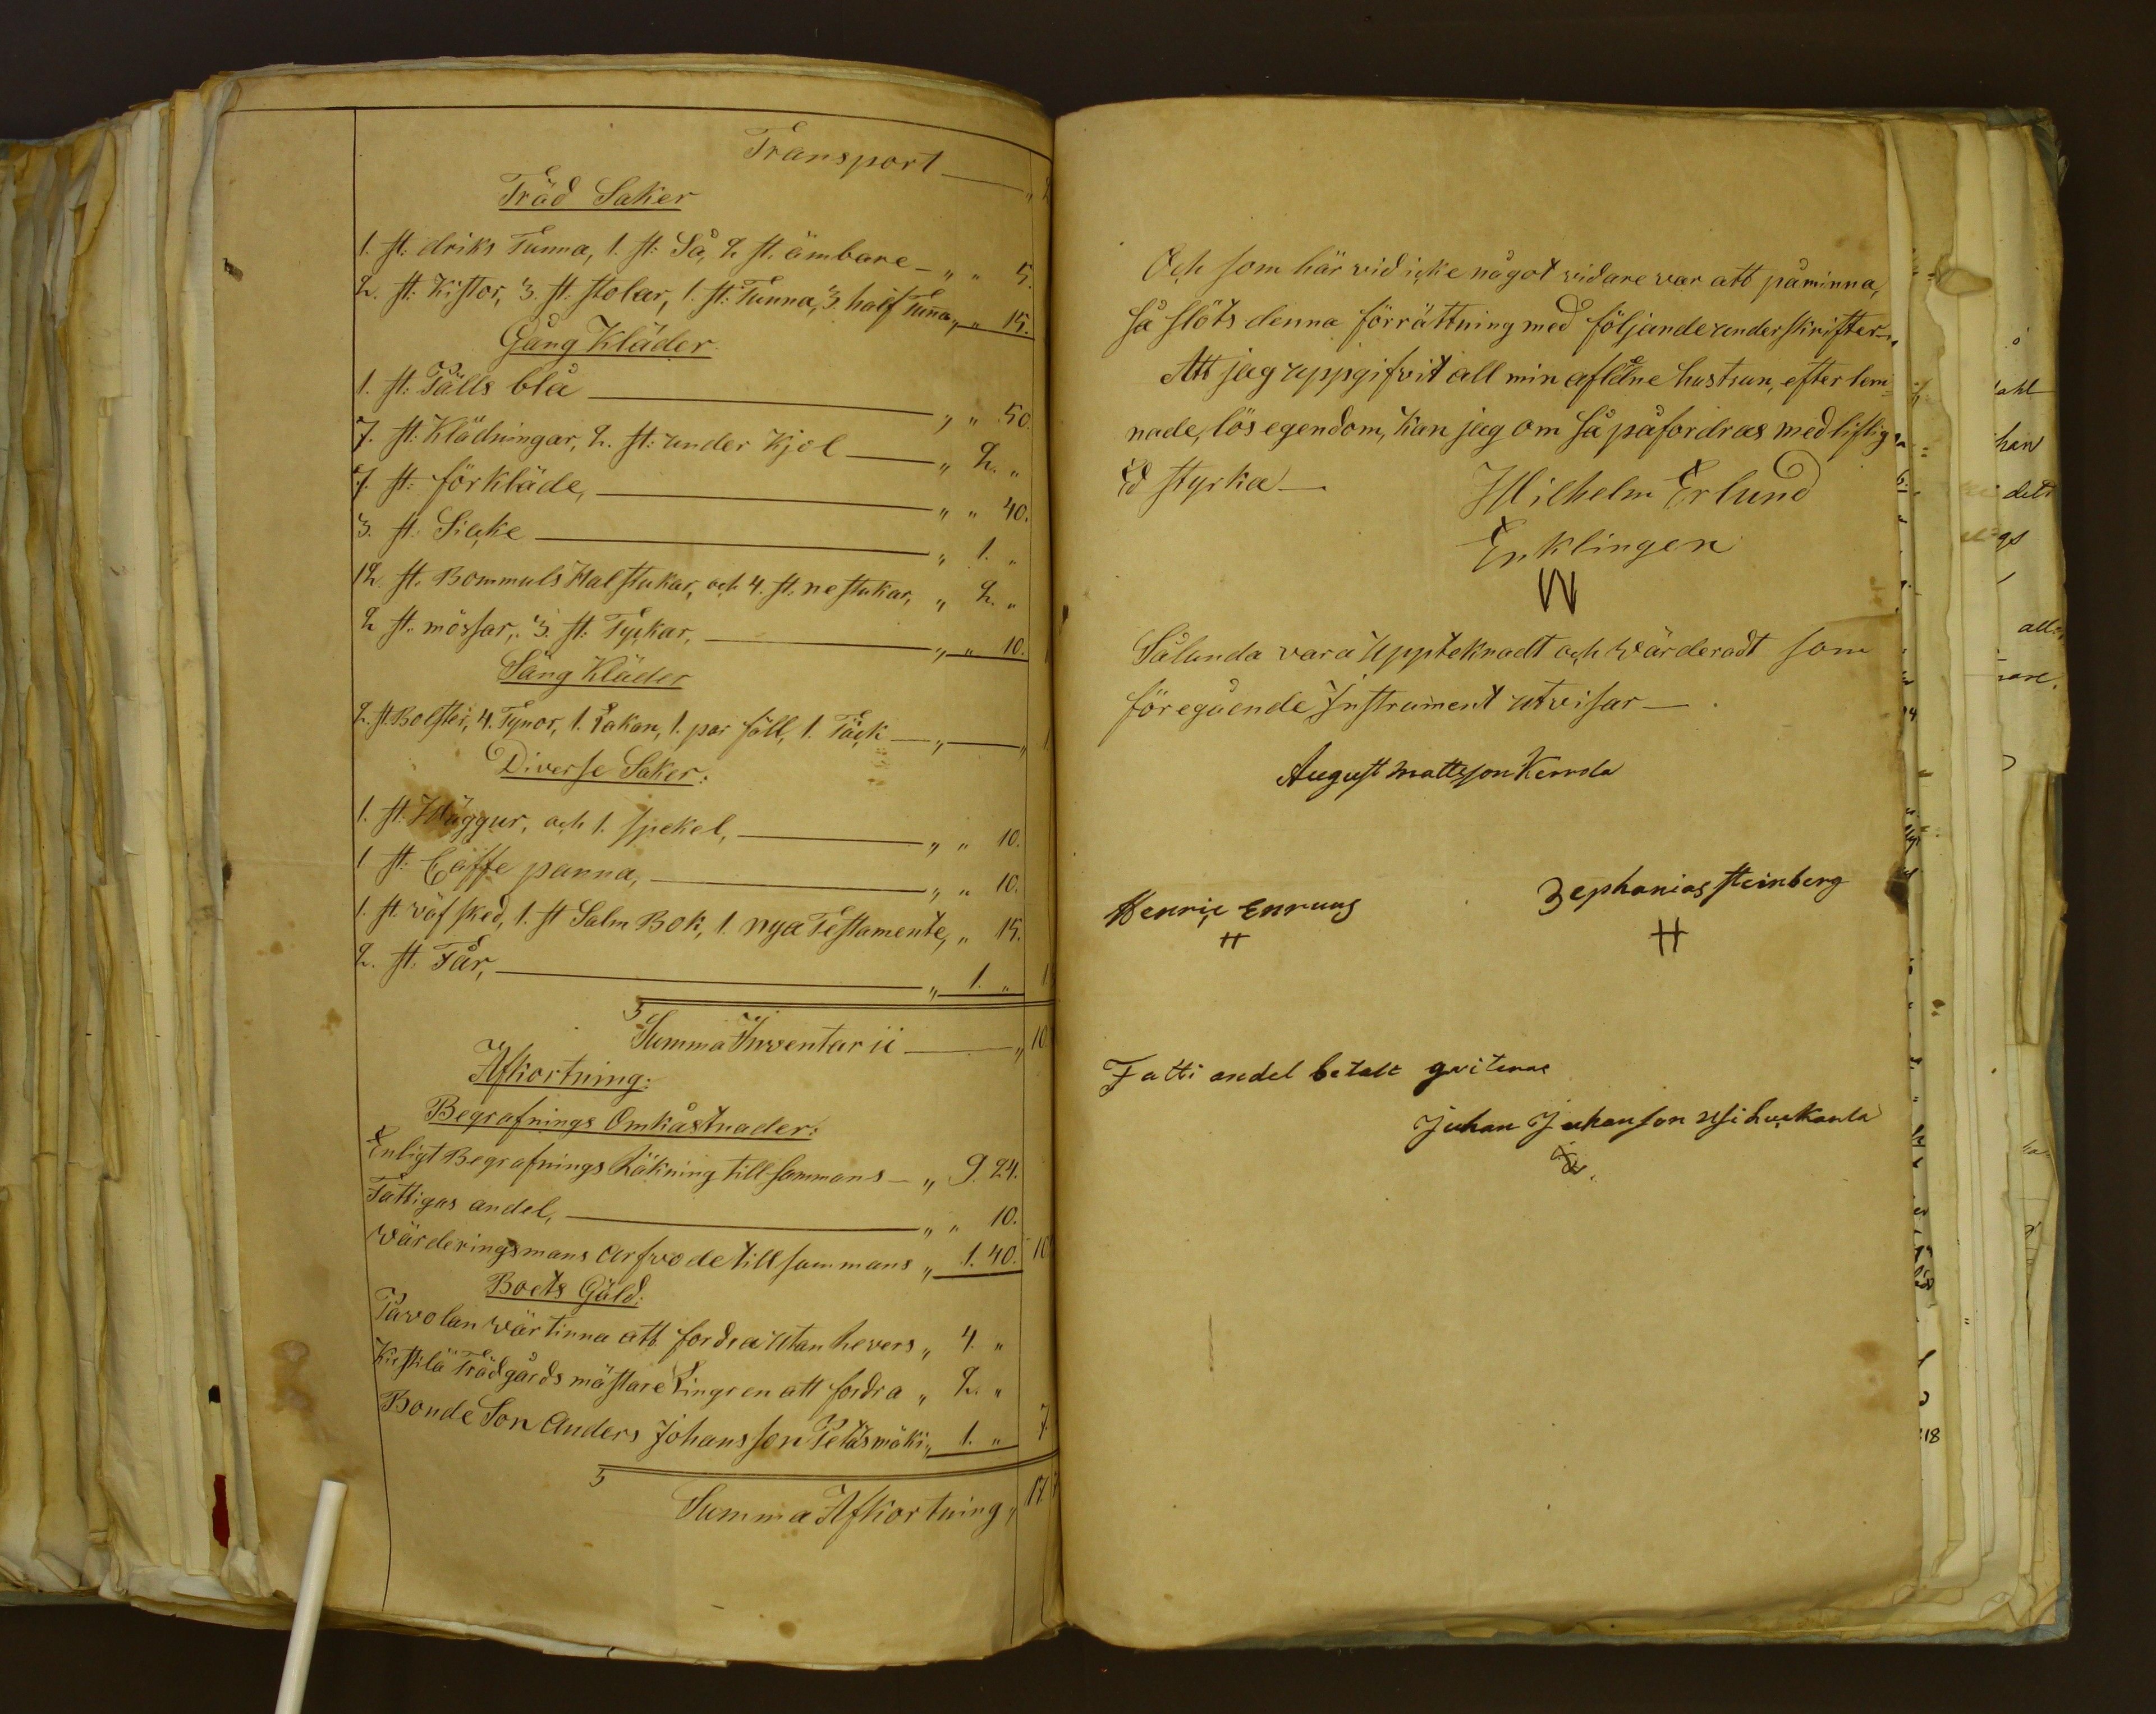 Transport — "
Träd Saker
1. st: driks Tunna, 1. st: Så, 2 st. ämbare — " " 5.
2. st: Kistor, 3. st: stolar, 1. st: Tunna, 3. half Tuña, " " 15.
Gång Kläder
1. st: Pälls blå — " " 50
7. st: Klädningar, 2. st: under Kjol — " 2. "
7. st: förkläde, — " " 40.
3. st. Sicke — " 1. "
12 st. Bommuls Halstukar, och 4. st. nestukar, " 2. "
2 st. mössar, 3. st: Tyckar, — " " 10.
Säng Kläder
2. st. Bolster, 4. Tynor, 1. Lakan, 1. par fäll, 1. Täck — " — "
Diverse Saker:
1. st. Wäggur, och 1. spekel, — " " 10.
1 st: Caffe panna, — " " 10.
1. st. väf sked, 1. st Salm Bok, 1. nya Testamente, " 15.
2. st. Får, — " 1. "
Summa Inventarii — " 10
Afkortning:
Begrafnings Omkåstnader:
Enligt Begrafnings Räkning tillsammans — " 9. 24.
Fattigas andel, — " " 10.
Wärderingsmans Arfvode tillsammans " 1. 40. 10
Boets Gäld:
Pavolan Wärtinna att fordra utan hevers " 4. "
Trädgårds mästare Lingren att fordra " 2. "
Bonde Son Anders Johansson Petäsmäki " 1. " 7
Summa Afkortning, " 17
Och som här vid icke något vidare var att påminna,
så slöts denna förrättning med följande underskrifter —
Att jag uppgifvit all min aflidne hustrun, efter lem=
nade, lös egendom, kan jag om så påfordras med liflig
Ed styrka —
Wilhelm Erlund
Enklingen
Sålunda vara Uppteknadt och Wärderadt som
föregående Instrument utvisar —
August Mattsson Kerrola
Henric Enruus
Zephanias Steinberg
Fatti andel betalt qviteras
Juhan Juhanson Usi Luckanla